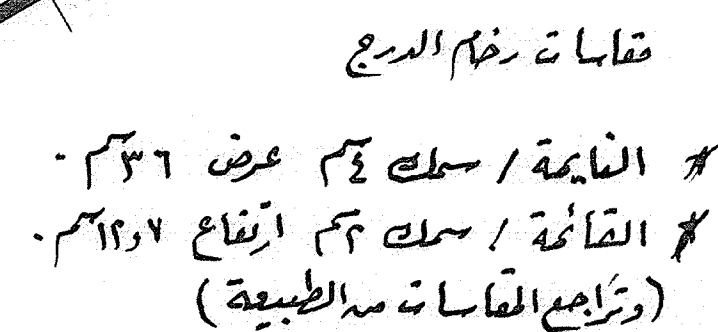 مقاسات رخام الدرج
* النايمة / سمك ٤سم عرض ٣٦سم .
* القائمة / سمك ٢سم ارتفاع ٧و١٢سم .
(وتراجع المقاسات من الطبيعة)